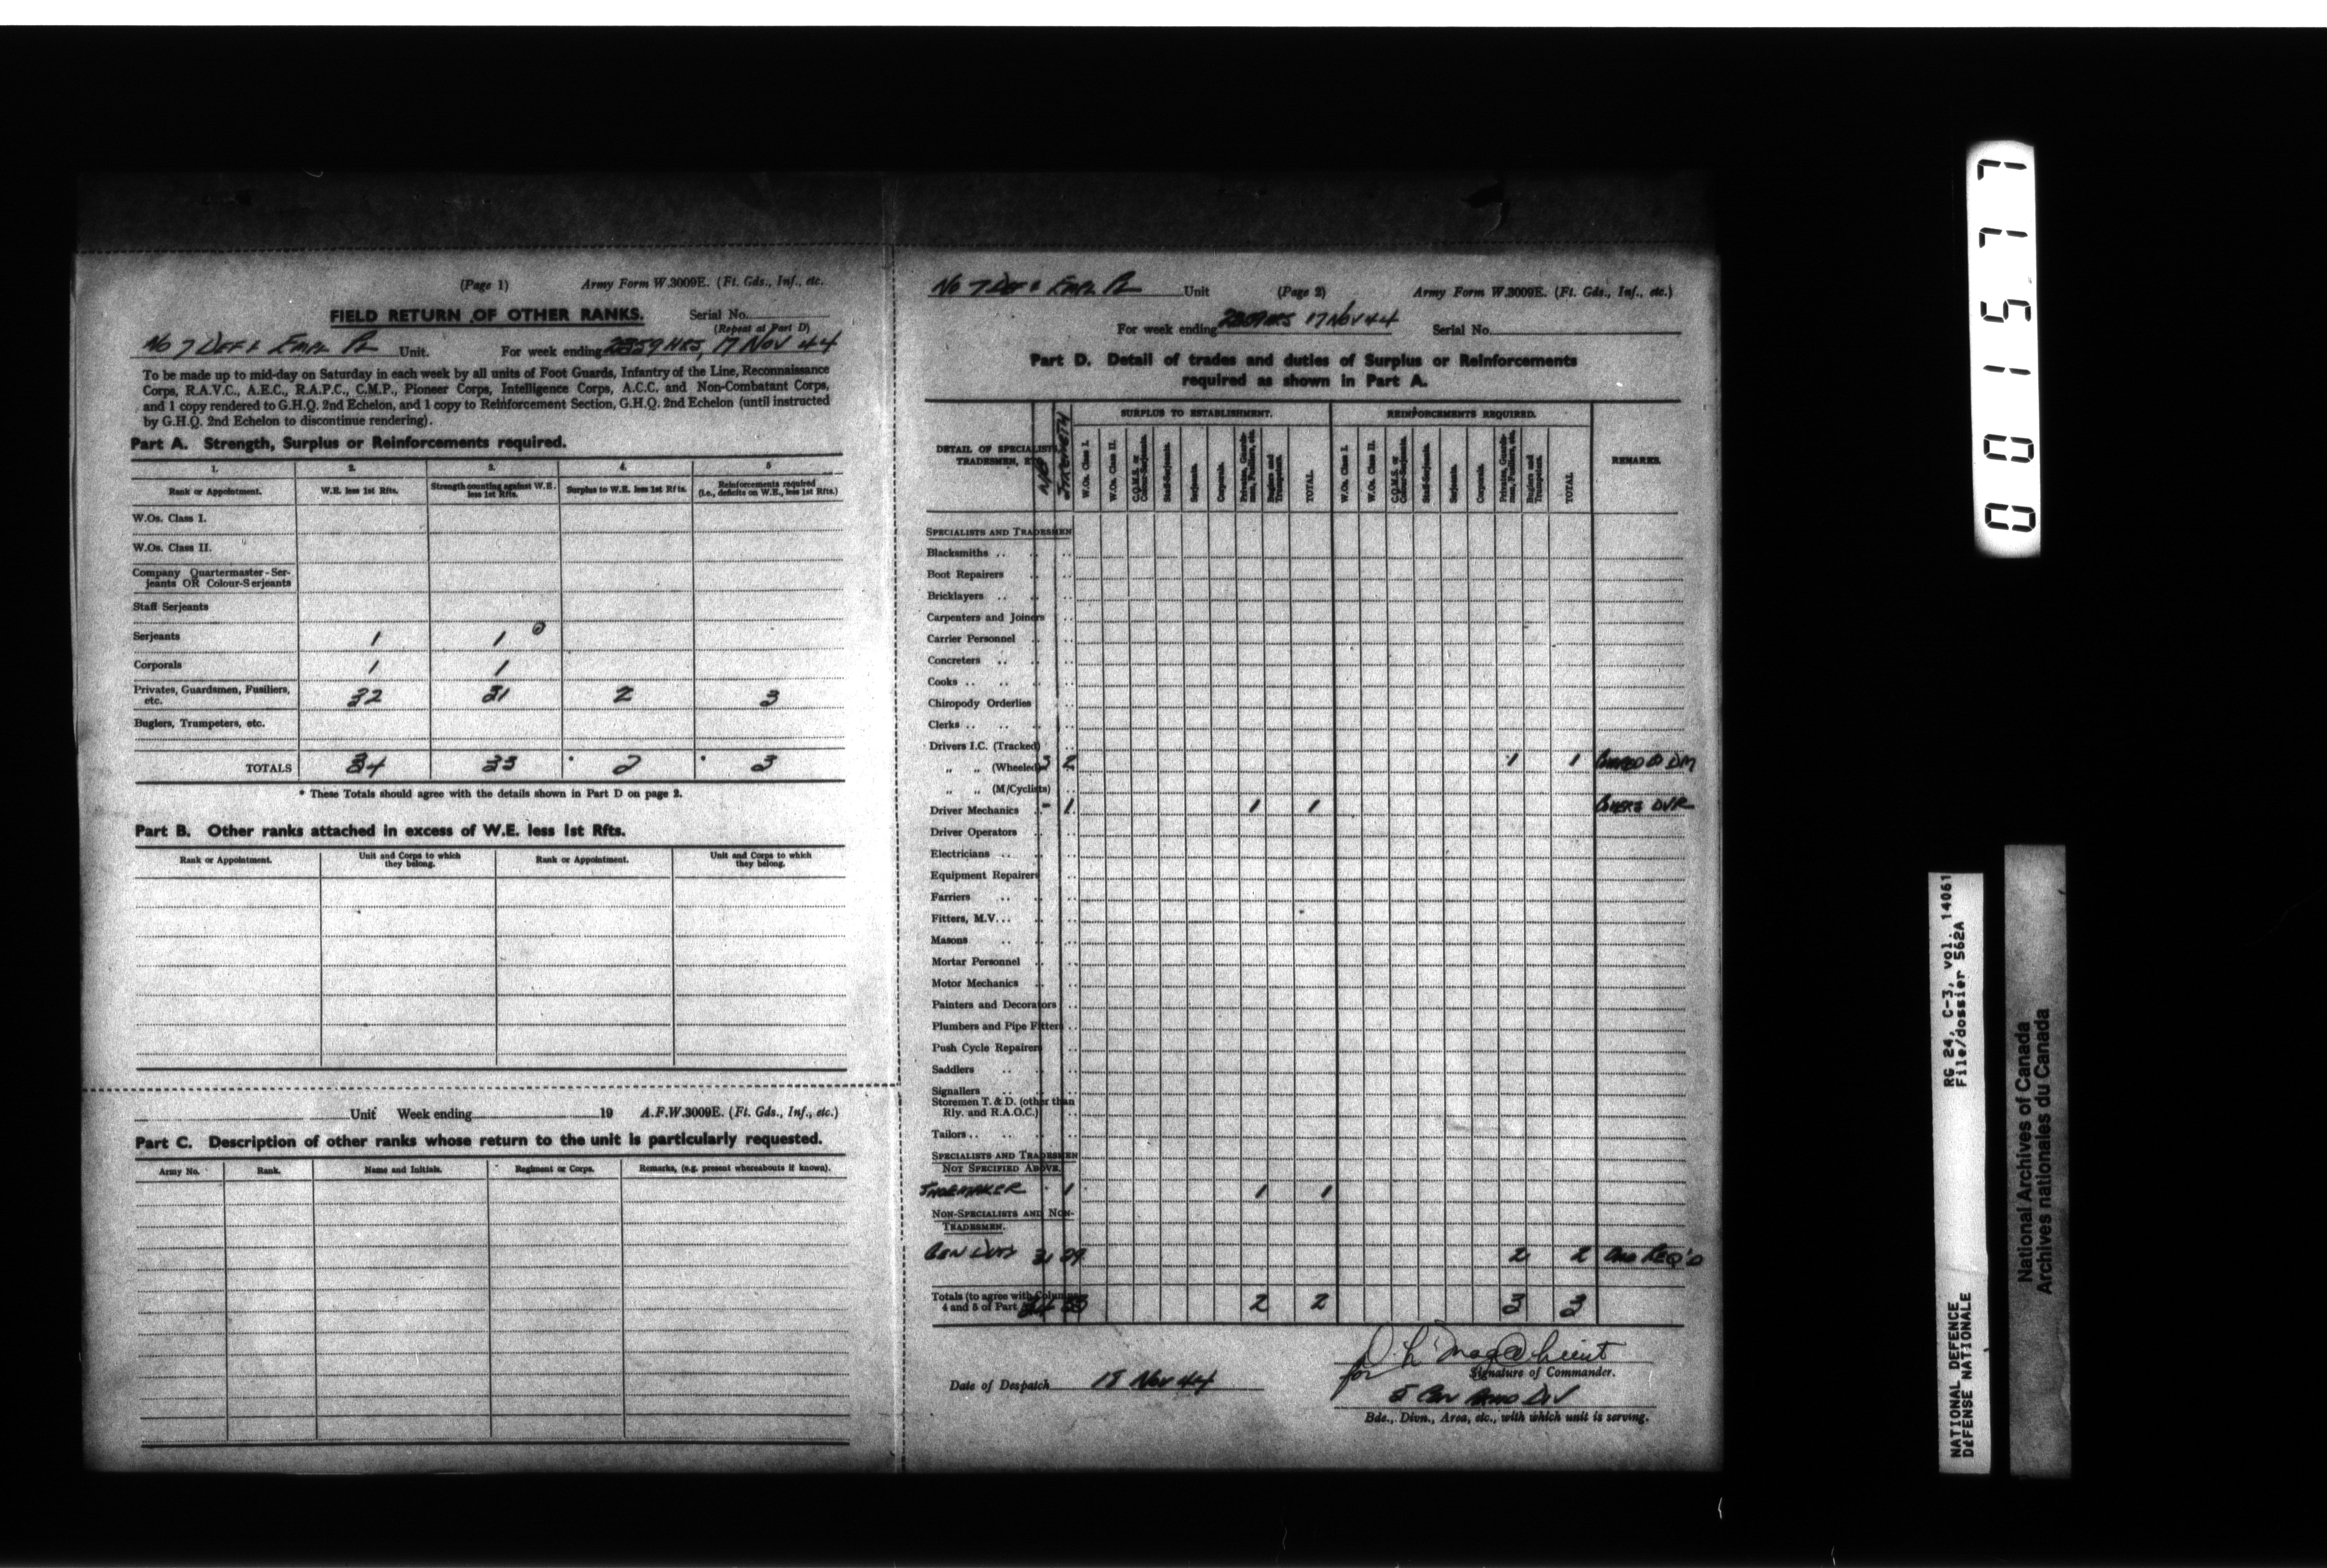 (Page 1) Army Form W.3009E. (Ft. Gds., Inf., etc.
FIELD RETURN OF OTHER RANKS. Serial No.
(Repeat at Part D)
No 7 DEF & EMPL PL Unit. For week ending 2359 HRS, 17 NOV 44
To be made up to mid-day on Saturday in each week by all units of Foot Guards, Infantry of the Line, Reconnaissance
Corps, R.A.V.C., A.E.C., R.A.P.C., C.M.P., Pioneer Corps, Intelligence Corps, A.C.C. and Non-Combatant Corps,
and 1 copy rendered to G.H.Q. 2nd Echelon, and 1 copy to Reinforcement Section, G.H.Q. 2nd Echelon (until instructed
by G.H.Q. 2nd Echelon to discontinue rendering).
Part A. Strength, Surplus or Reinforcements required.
1. 2. 3. 4. 5
Rank or Appointment. W.E. less 1st Rfts. Strength counting against W.E. less 1st Rfts. Surplus to W.E. less 1st Rfts. Reinforcements required (i.e., deficits on W.E., less 1st Rfts.)
W.Os. Class I.
W.Os. Class II.
Company Quartermaster-Ser-
jeants OR Colour-Serjeants
Staff Serjeants
Serjeants 1 1
Corporals 1 1
Privates, Guardsmen, Fusiliers, etc. 32 31 2 3
Buglers, Trumpeters, etc.
TOTALS 34 33 * 2 * 3
* These Totals should agree with the details shown in Part D on page 2.
Part B. Other ranks attached in excess of W.E. less 1st Rfts.
Rank or Appointment. Unit and Corps to which they belong. Rank or Appointment. Unit and Corps to which they belong.
Unit Week ending 19 A.F.W.3009E. (Ft. Gds., Inf., etc.)
Part C. Description of other ranks whose return to the unit is particularly requested.
Army No. Rank. Name and Initials. Regiment or Corps. Remarks, (e.g. present whereabouts if known).
No 7 DEF & EMPL PL Unit (Page 2) Army Form W.3009E. (Ft. Gds., Inf., etc.)
For week ending 2359 HRS 17 NOV 44 Serial No.
Part D. Detail of trades and duties of Surplus or Reinforcements
required as shown in Part A.
DETAIL OF SPECIALISTS, TRADESMEN, STRENGTH SURPLUS TO ESTABLISHMENT. REINFORCEMENTS REQUIRED. REMARKS.
W.Os. Class I. W.Os. Class II. C.Q.M.S. or Colour-Serjeants. Staff-Serjeants. Serjeants. Corporals. Privates, Guardsmen, Fusiliers, etc. Buglers and Trumpeters. TOTAL W.Os. Class I. W.Os. Class II. C.Q.M.S. or Colour-Serjeants. Staff-Serjeants. Serjeants. Corporals. Privates, Guardsmen, Fusiliers, etc. Buglers and Trumpeters. TOTAL
SPECIALISTS AND TRADESMEN
Blacksmiths ..
Boot Repairers
Bricklayers ..
Carpenters and Joiners
Carrier Personnel
Concreters ..
Cooks .. ..
Chiropody Orderlies
Clerks .. ..
Drivers I.C. (Tracked)
„ „ (Wheeled) 3 2 1 1 DM
„ „ (M/Cyclists)
Driver Mechanics - 1 1 1 DVR
Driver Operators
Electricians ..
Equipment Repairers
Farriers ..
Fitters, M.V. ..
Masons ..
Mortar Personnel
Motor Mechanics
Painters and Decorators
Plumbers and Pipe Fitters
Push Cycle Repairers
Saddlers ..
Signallers ..
Storemen T. & D. (other than
Rly. and R.A.O.C.)
Tailors .. ..
SPECIALISTS AND TRADESMEN
NOT SPECIFIED ABOVE.
SHOEMAKER 1 1 1
NON-SPECIALISTS AND NON-
TRADESMEN.
GEN DUTY 31 29 2 2 REQ'D
Totals (to agree with Columns
4 and 5 of Part A) 34 33 2 2 3 3
for Signature of Commander.
Date of Despatch 18 NOV 44
5 CDN ARMD DIV
Bde., Divn., Area, etc., with which unit is serving.
001577
RG 24, C-3, vol. 14061
File/dossier 562A
NATIONAL DEFENCE
DÉFENSE NATIONALE
National Archives of Canada
Archives nationales du Canada